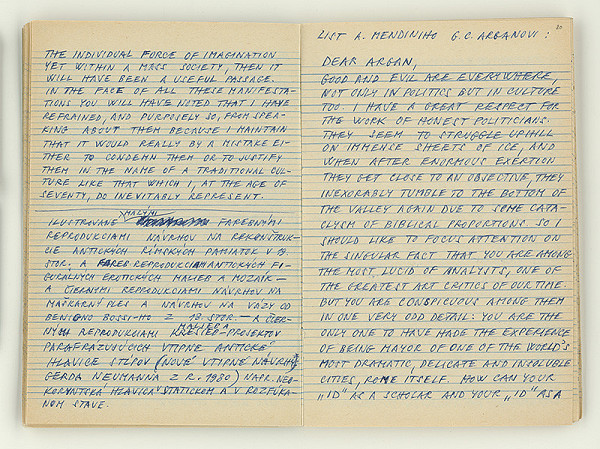 THE INDIVIDUAL FORCE OF IMAGINATION
YET WITHIN A MASS SOCIETY, THEN IT
WILL HAVE BEEN A USEFUL PASSAGE.
IN THE FACE OF ALL THESE MANIFESTA-
TIONS YOU WILL HAVE NOTED THAT I HAVE
REFRAINED, AND PURPOSELY SO, FROM SPEA-
KING ABOUT THEM BECAUSE I MAINTAIN
THAT IT WOULD REALLY BY A MISTAKE EI-
THER TO CONDEMN THEM OR TO JUSTIFY
THEM IN THE NAME OF A TRADITIONAL CUL-
TURE LIKE THAT WHICH I, AT THE AGE OF
SEVENTY, DO INEVITABLY REPRESENT.
MALÝMI
ILUSTROVANÉ FAREBNÝMI
REPRODUKCIAMI NÁVRHOV NA REKONŠTRUK-
CIE ANTICKÝCH RÍMSKYCH PAMIATOK V 19.
STOR. A FAREB. REPRODUKCIAMI ANTICKÝCH FI-
GURÁLNYCH EROTICKÝCH MALIEB A MOZAÍK —
A ČIERNYMI REPRODUKCIAMI NÁVRHOV NA
MAŠKARNÝ PLES A NÁVRHOV NA VÁZY OD
BENIGNO BOSSI-HO Z 18. STOR. — A ČIER-
NYMI REPRODUKCIAMI KRESIEB-PROJEKTOV
PARAFRÁZUJÚCICH VTIPNE ANTICKÉ
HLAVICE STĹPOV (NOVÉ VTIPNÉ NÁVRHY
GERDA NEUMANNA Z R. 1980) NAPR. NEO-
KORINTSKÁ HLAVICA V STATICKOM A V ROZFÚKA-
NOM STAVE.
20
LIST A. MENDINIHO G. C. ARGANOVI :
DEAR ARGAN,
GOOD AND EVIL ARE EVERYWHERE
NOT ONLY IN POLITICS BUT IN CULTURE
TOO. I HAVE A GREAT RESPECT FOR
THE WORK OF HONEST POLITICIANS.
THEY SEEM TO STRUGGLE UPHILL
ON IMMENSE SHEETS OF ICE, AND
WHEN AFTER ENORMOUS EXERTION
THEY GET CLOSE TO AN OBJECTIVE, THEY
INEXORABLY TUMBLE TO THE BOTTOM OF
THE VALLEY AGAIN DUE TO SOME CATA-
CLYSM OF BIBLICAL PROPORTIONS. SO I
SHOULD LIKE TO FOCUS ATTENTION ON
THE SINGULAR FACT THAT YOU ARE AMONG
THE MOST LUCID OF ANALYSTS, ONE OF
THE GREATEST ART CRITICS OF OUR TIME.
BUT YOU ARE CONSPICUOUS AMONG THEM
IN ONE VERY ODD DETAIL: YOU ARE THE
ONLY ONE TO HAVE MADE THE EXPERIENCE
OF BEING MAYOR OF ONE OF THE WORLD'S
MOST DRAMATIC, DELICATE AND INSOLUBLE
CITIES, ROME ITSELF. HOW CAN YOUR
„ID" AS A SCHOLAR AND YOUR „ID" AS A